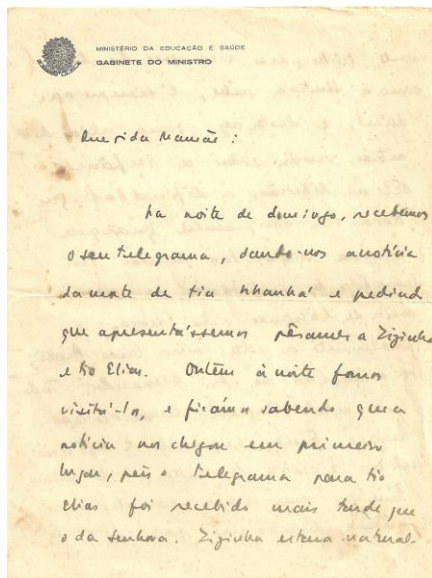 MINISTÉRIO DA EDUCAÇÃO E SAÚDE
GABINETE DO MINISTRO
Querida Mamãe:
Na noite de domingo, recebemos
o seu telegrama, dando-nos a notícia
da morte de tia Nhanhá e pedindo
que apresentássemos pêsames a Zizinha
e tio Elias. Ontem à noite fomos
visitá-los, e ficámos sabendo que a
notícia nos chegou em primeiro
lugar, pois o telegrama para tio
Elias foi recebido mais tarde que
o da senhora. Zizinha estava natural-